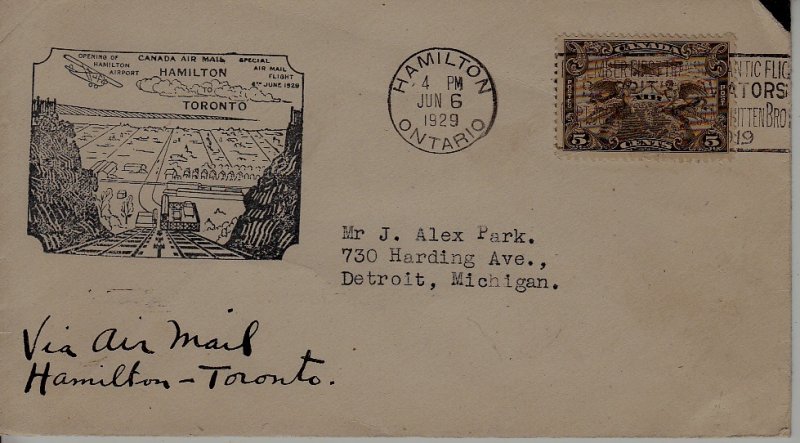 OPENING OF
HAMILTON
AIRPORT
CANADA AIR MAIL
HAMILTON
TORONTO
SPECIAL
AIR MAIL
FLIGHT
6TH JUNE 1929
HAMILTON
4 PM
JUN 6
1929
ONTARIO
CANADA
AIR
5 CENTS 5
ANTIC FLIG
ATORS
ITTEN BRO
19
Mr J. Alex Park.
730 Harding Ave.,
Detroit, Michigan.
Via Air Mail
Hamilton - Toronto.